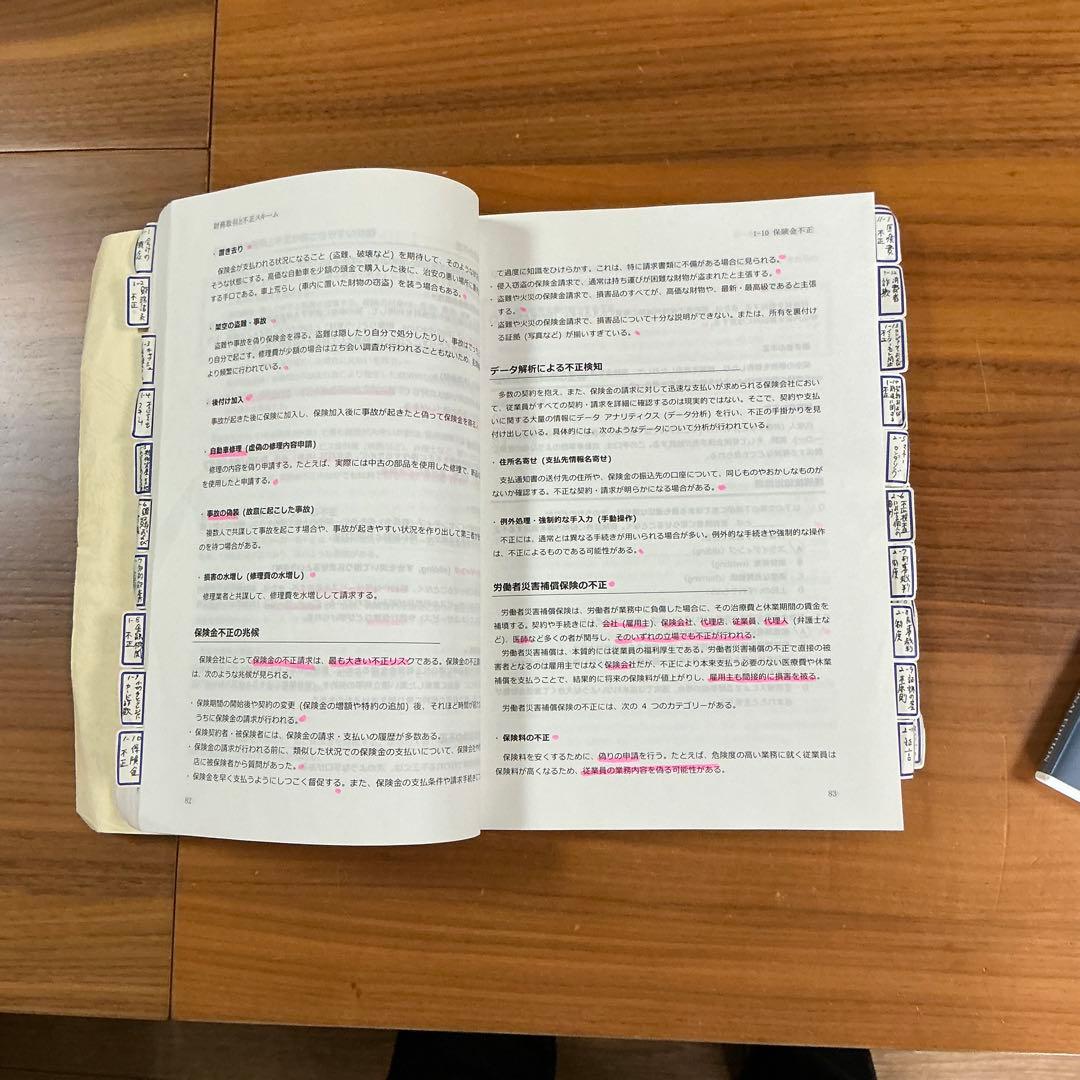 財務取引と不正スキーム
・置き去り
保険金が支払われる状況になること (盗難、破壊など) を期待して、そのような
そうな状態にする。高価な自動車を少額の頭金で購入した後に、治安の悪い場所に
する手口である。車上荒らし (車内に置いた財物の窃盗) を装う場合もある。
・架空の盗難・事故
盗難や事故を偽り保険金を得る。盗難は隠したり自分で処分したりし、事故は
り自分で起こす。修理費が少額の場合は立ち会い調査が行われることもないため、
より頻繁に行われている。
・後付け加入
事故が起きた後に保険に加入し、保険加入後に事故が起きたと偽って保険金を
・自動車修理 (虚偽の修理内容申請)
修理の内容を偽り申請する。たとえば、実際には中古の部品を使用した修理で、新品
を使用したと申請する。
・事故の偽装 (故意に起こした事故)
複数人で共謀して事故を起こす場合や、事故が起きやすい状況を作り出して第三者が
のを待つ場合がある。
・損害の水増し (修理費の水増し)
修理業者と共謀して、修理費を水増しして請求する。
保険金不正の兆候
保険会社にとって保険金の不正請求は、最も大きい不正リスクである。保険金の不正
は、次のような兆候が見られる。
・保険期間の開始後や契約の変更 (保険金の増額や特約の追加) 後、それほど時間が
うちに保険金の請求が行われる。
・保険契約者・被保険者には、保険金の請求・支払いの履歴が多数ある。
・保険金の請求が行われる前に、類似した状況での保険金の支払いについて、保険会社や
店に被保険者から質問があった。
・保険金を早く支払うようにしつこく督促する。また、保険金の支払条件や請求手続き
82
1-10 保険金不正
て過度に知識をひけらかす。これは、特に請求書類に不備がある場合に見られる。
・侵入窃盗の保険金請求で、通常は持ち運びが困難な財物が盗まれたと主張する。
・盗難や火災の保険金請求で、損害品のすべてが、高価な財物や、最新・最高級であると主張
する。
・盗難や火災の保険金請求で、損害品について十分な説明ができない。または、所有を裏付け
る証拠 (写真など) が揃いすぎている。
データ解析による不正検知
多数の契約を抱え、また、保険金の請求に対して迅速な支払いが求められる保険会社におい
て、従業員がすべての契約・請求を詳細に確認するのは現実的ではない。そこで、契約や支払
いに関する大量の情報にデータ アナリティクス (データ分析) を行い、不正の手掛かりを見
付け出している。具体的には、次のようなデータについて分析が行われている。
・住所名寄せ (支払先情報名寄せ)
支払通知書の送付先の住所や、保険金の振込先の口座について、同じものやおかしなものが
ないか確認する。不正な契約・請求が明らかになる場合がある。
・例外処理・強制的な手入力 (手動操作)
不正には、通常とは異なる手続きが用いられる場合が多い。例外的な手続きや強制的な操作
は、不正によるものである可能性がある。
労働者災害補償保険の不正
労働者災害補償保険は、労働者が業務中に負傷した場合に、その治療費と休業期間の賃金を
補填する。契約や手続きには、会社 (雇用主)、保険会社、代理店、従業員、代理人 (弁護士な
ど)、医師など多くの者が関与し、そのいずれの立場でも不正が行われる。
労働者災害補償は、本質的には従業員の福利厚生である。労働者災害補償の不正で直接の被
害者となるのは雇用主ではなく保険会社だが、不正により本来支払う必要のない医療費や休業
補償を支払うことで、結果的に将来の保険料が値上がりし、雇用主も間接的に損害を被る。
労働者災害補償保険の不正には、次の 4 つのカテゴリーがある。
・保険料の不正
保険料を安くするために、偽りの申請を行う。たとえば、危険度の高い業務に就く従業員は
保険料が高くなるため、従業員の業務内容を偽る可能性がある。
83
1-8 金融機関
不正
1-10 保険金
不正
医療費
不正
1-12 消費者
詐欺